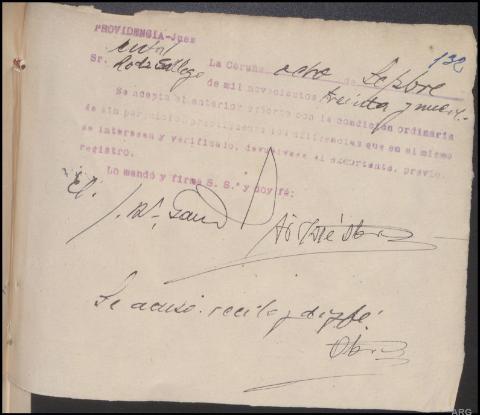 PROVIDENCIA-Juez
132
Sr. La Coruña, ocho de Sepbre
de mil novecientos treinta y nueve.
Se acepta el anterior exhorto con la condición ordinaria
de sin perjuicio practíquense las diligencias que en el mismo
se interesan y verificado, devuélvase al exhortante, previo
registro.
Lo mandó y firma S. Sª y doy fé:
Se acusó recibo y doy fé.
ARG